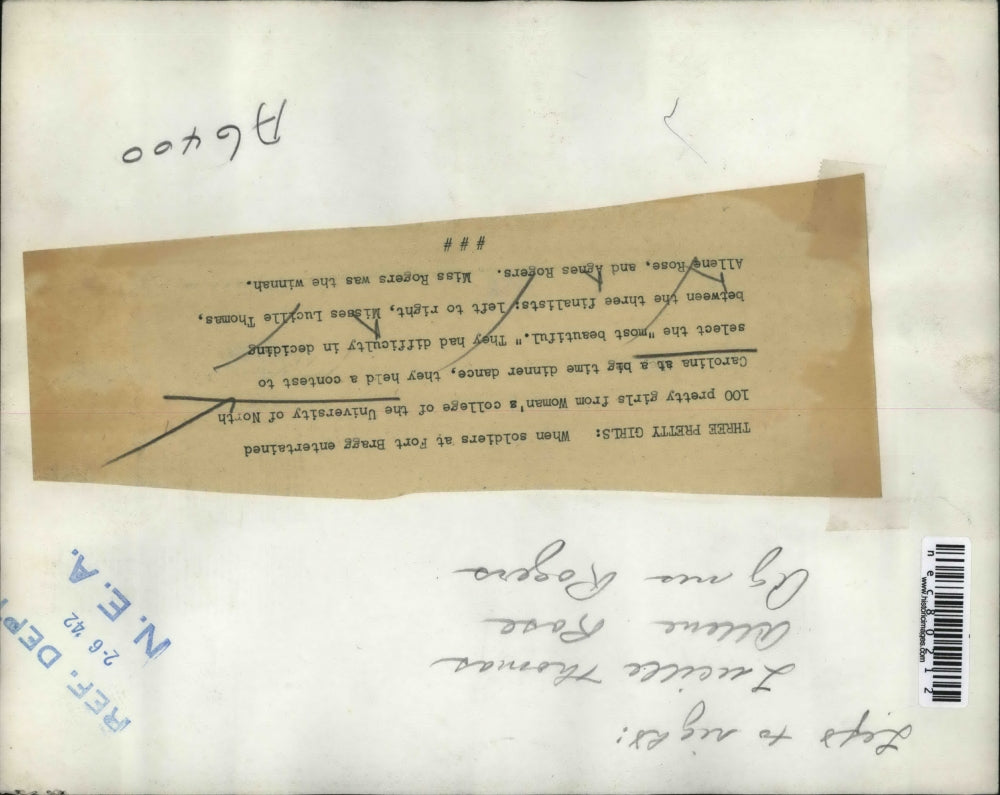 Left to right:
Lucille Thomas
Allene Rose
Agnes Rogers
REF. DEPT
2-6 '42
N. E. A.
THREE PRETTY GIRLS: When soldiers at Fort Bragg entertained
100 pretty girls from Woman's college of the University of North
Carolina at a big time dinner dance, they held a contest to
select the "most beautiful." They had difficulty in deciding
between the three finalists; left to right, Misses Lucille Thomas,
Allene Rose, and Agnes Rogers. Miss Rogers was the winnah.
# # #
A6400
www.historicimages.com
nec80212